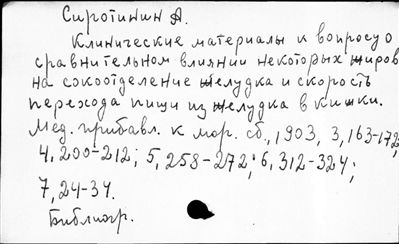 Сиротинин А.
Клинические материалы к вопросу о
сравнительном влиянии некоторых жиров
на сокоотделение желудка и скорость
перехода пищи из желудка в кишки.
Мед. прибавл. к мор. сб., 1903, 3, 163-172,
4, 200-212; 5, 258-272; 6, 312-324;
7, 24-34.
Библиогр.